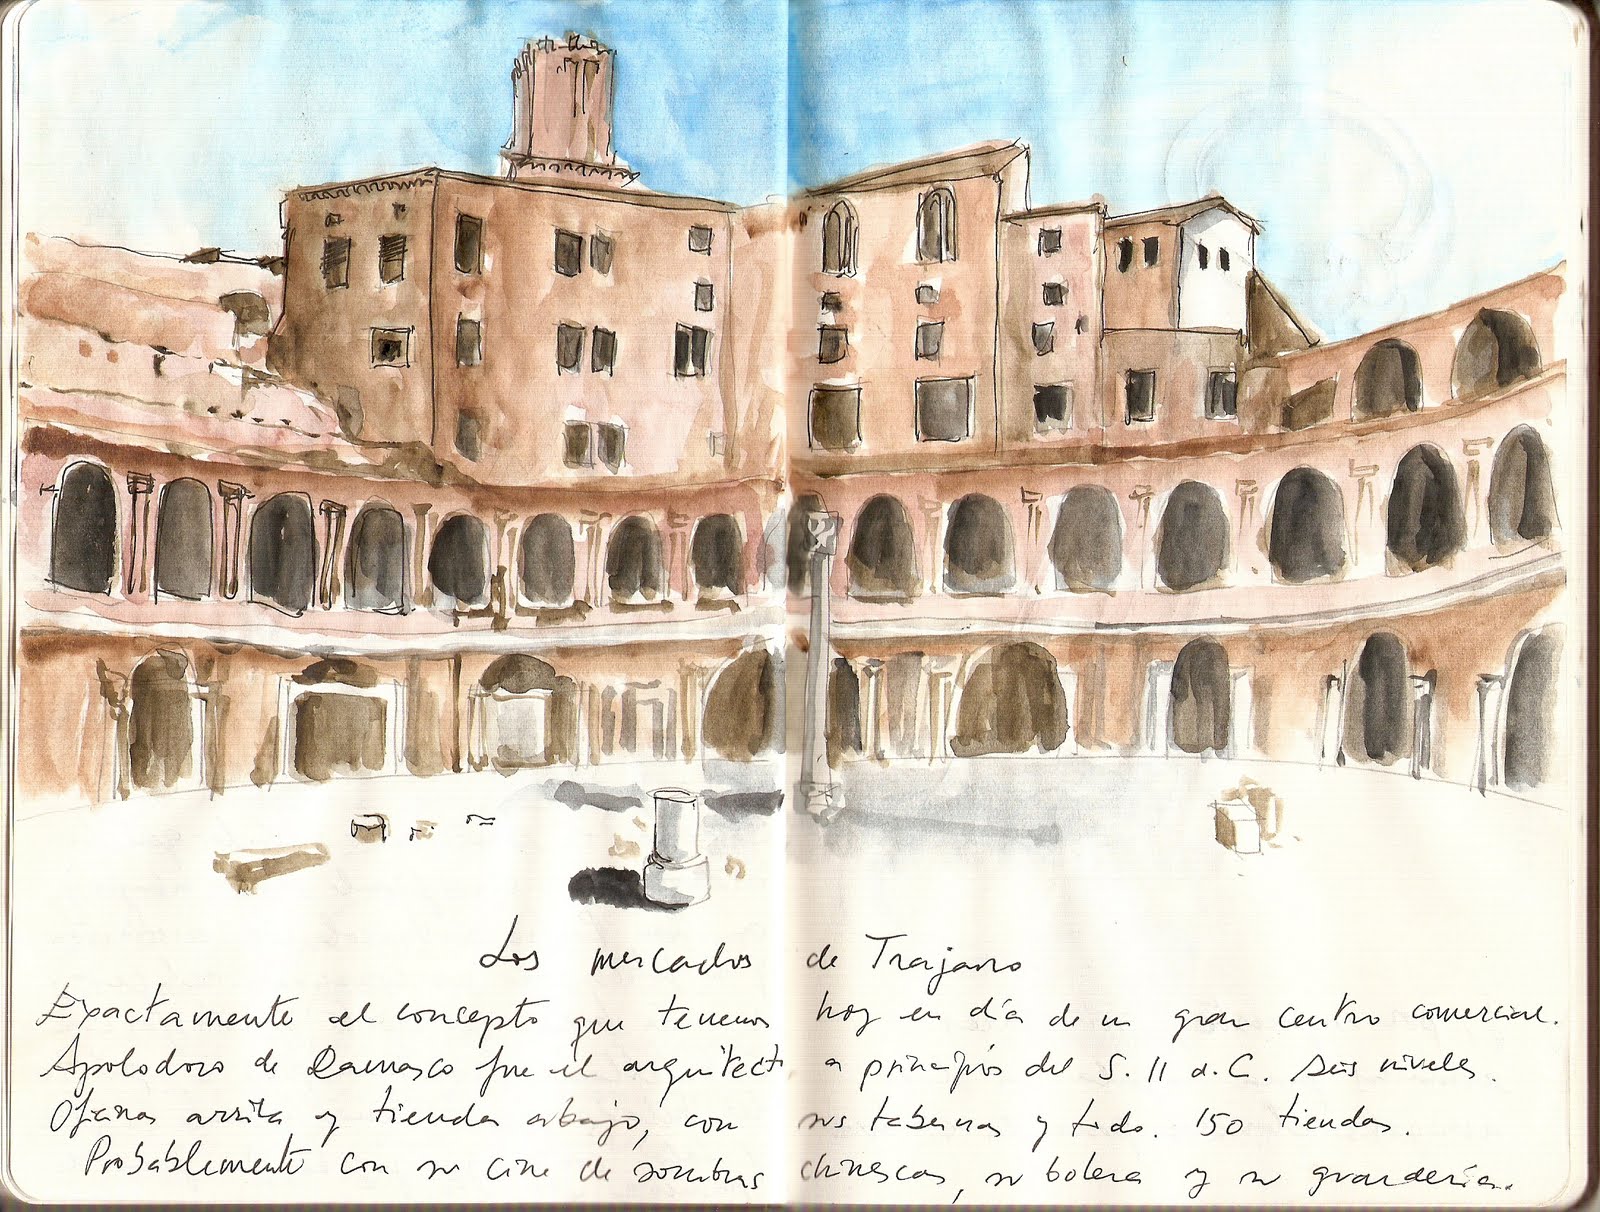 Los mercados de Trajano
Exactamente el concepto que tenemos hoy en día de un gran centro comercial.
Apolodoro de Damasco fue el arquitecto a principios del S. II d.C. Seis niveles.
Oficinas arriba y tiendas abajo, con sus tabernas y todo. 150 tiendas.
Probablemente con su cine de sombras chinescas, su bolera y su guardería.